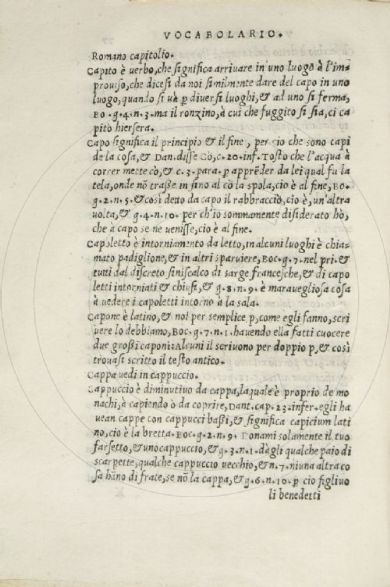 VOCABOLARIO.
Romano capitolio.
Capito è uerbo, che significa arriuare in uno luogo à l'im=
prouiso, che dicesi da noi similmente dare del capo in uno
luogo, quando si uà p̱ diuersi luoghi, & ad uno si ferma,
BO. g. 4. n. 3. ma il ronzino, à cui che fuggito si sia, ci ca
pitò hiersera.
Capo significa il principio & il fine, per ciò che sono capi
de la cosa, & Dan. disse Cò, c. 20. inf. Tosto che l'acqua à
correr mette cò, & c. 3. para. p apprẽder da lei qual fu la
tela, onde nõ trasse in fino al cò la spola, cio è al fine, BO.
g. 2. n. 5. & così detto da capo il rabbracciò, cio è, un'altra
uolta, & g. 4. n. 10. per ch'io sommamente disiderato hò,
che à capo se ne uenisse, cio è al fine.
Capoletto è intorniamento da letto, in alcuni luoghi è chia=
mato padiglione, & in altri sparuiere, BOC. g. 7. nel pri. &
tutti dal discreto siniscalco di sarge francesche, & di capo
letti intorniati & chiusi, & g. 8. n. 9. è marauegliosa cosa
à uedere i capoletti intorno à la sala.
Capone è latino, & noi per semplice p, come egli fanno, scri
uere lo debbiamo, BOC. g. 7. n. 1. hauendo ella fatti cuocere
due grossi caponi: Alcuni il scriuono per doppio p, & così
trouasi scritto il testo antico.
Cappa uedi in cappuccio.
Cappuccio è diminutiuo da cappa, laquale è proprio de mo
nachi, à capiendo ò da coprire, DANT. cap. 23. infer. egli ha
uean cappe con cappucci bassi, & significa capicium lati
no, cio è la bretta. BOC. g. 2. n. 9. Donami solamente il tuo
farsetto, & uno cappuccio, & g. 3. n. 1. dàgli qualche paio di
scarpette, qualche cappuccio uecchio, & n. 7. niuna altra co
sa hãno di frate, se nõ la cappa, & g. 6. n. 10. p cio figliuo
li benedetti